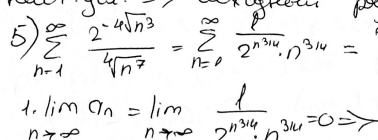 5) ∑_{n=1}^{∞} 2^{-∜n³} / ∜n⁷ = ∑_{n=1}^{∞} 1 / (2^{n^{3/4}} · n^{3/4}) =
1. lim_{n→∞} a_n = lim_{n→∞} 1 / (2^{n^{3/4}} · n^{3/4}) = 0 =>